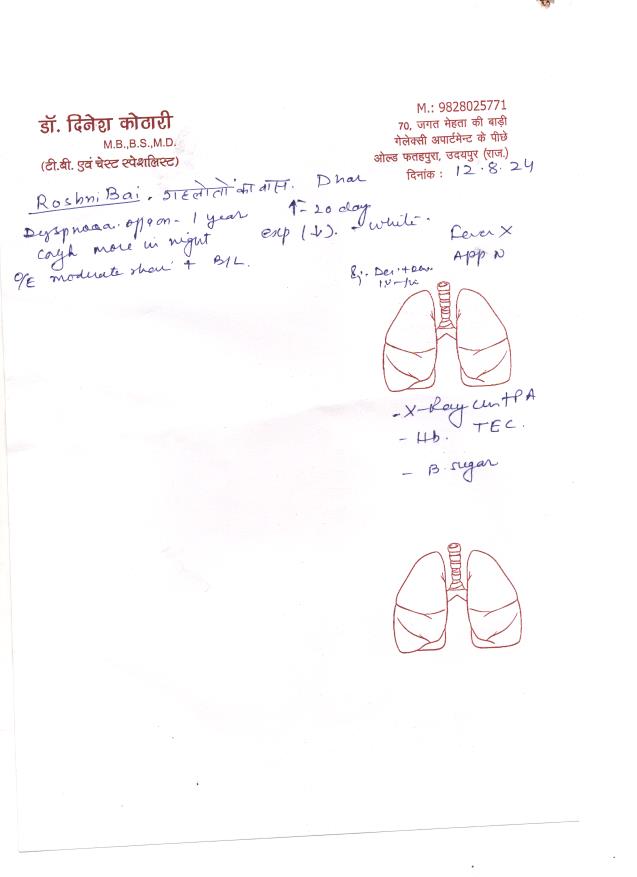 डॉ. दिनेश कोठारी
M.B.,B.S.,M.D.
(टी.बी. एवं चेस्ट स्पेशलिस्ट)
M.: 9828025771
70, जगत मेहता की बाड़ी
गेलेक्सी अपार्टमेन्ट के पीछे
ओल्ड फतहपुरा, उदयपुर (राज.)
दिनांक : 12.8.24
Roshni Bai. गहलोतों का वास. Dhar
Dyspnoea. off on - 1 year ↑ - 20 day
cough more in night exp (↓). - white.
Fever X
App N
O/E moderate + B/L.
- X-Ray PA
- Hb. TEC.
- B. sugar